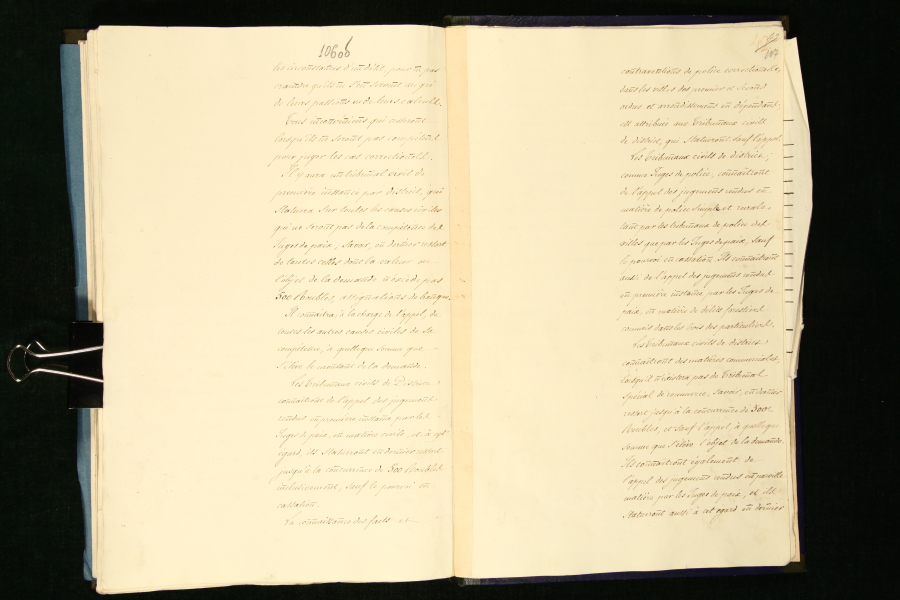 1060b
les circonstances d'un délit, pour ne pas
craindre qu'ils ne s'en servent au gré
de leurs passions ou de leurs calculs.
Ces inconvéniens qui
lorsqu'ils ne seront pas compétens
pour juger les cas correctionels.
Il y aura un tribunal civil de
première instance par district, qui
statuera sur toutes les causes civiles
qui ne seront pas de la compétence des
Juges de paix; savoir, en dernier ressort
de toutes celles dont la valeur ou
l'objet de la demande n'excède pas
300 Roubles, assignations de banque
Il connaitra, à la charge de l'appel, de
toutes les autres causes civiles de sa
compétence, à quelque somme que
s'élève le montant de la demande.
Les tribunaux civils de District
connaitront de l'appel des jugemens
rendus en première instance par les
Juges de paix, en matière civile, et à cet
égard, ils statueront en dernier ressort
jusqu'à la concurrence de 300 Roubles
inclusivement, sauf le pourvoi en
cassation.
La connaissance des faits et
contraventions de police correctionnelle,
dans les villes des premier et second
ordres et arrondissemens en dépendant
est attribuée aux Tribunaux civils
de district, qui statueront, sauf l'appel.
Les tribunaux civils de district,
comme Juges de police, connaitront
de l'appel des jugemens rendus en
matière de police simple et rurale,
tant par les tribunaux de police des
villes que par les Juges de paix, sauf
le pourvoi en cassation. Ils connaitront
aussi de l'appel des jugemens rendus
en première instance par les Juges de
paix, en matière de délits forestiers
commis dans les bois des particuliers.
Les tribunaux civils de district
connaitront des matières commerciales
lorsqu'il n'existera pas de Tribunal
spécial de commerce, savoir, en dernier
ressort jusqu'à la concurrence de 300
Roubles, et sauf l'appel, à quelque
somme que s'élève l'objet de la demande.
Ils connaitront également de
l'appel des jugemens rendus en pareille
matière par les Juges de paix, et ils
statueront aussi à cet égard en dernier